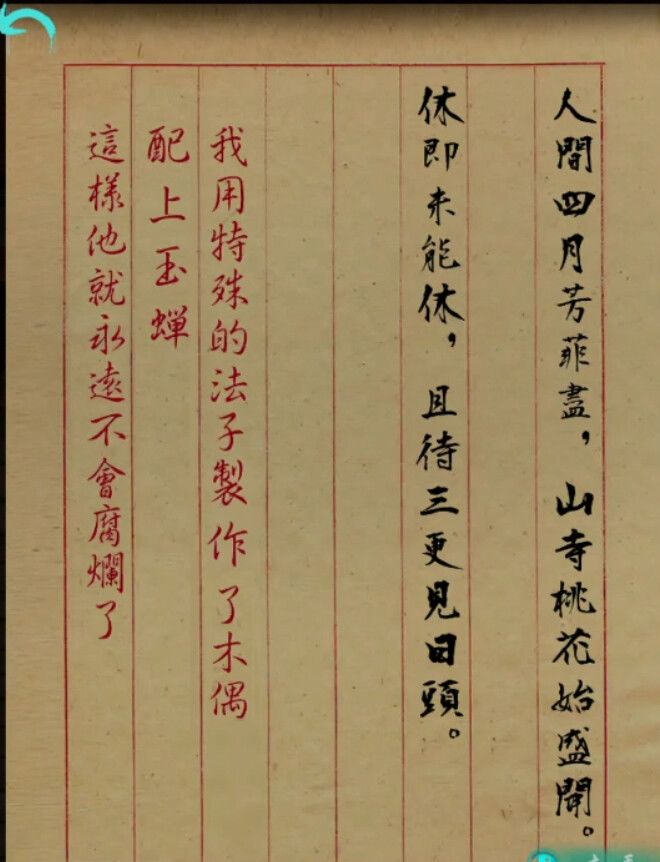 人間四月芳菲盡，山寺桃花始盛開。
休即未能休，且待三更見日頭。
我用特殊的法子製作了木偶
配上玉蟬
這樣他就永遠不會腐爛了